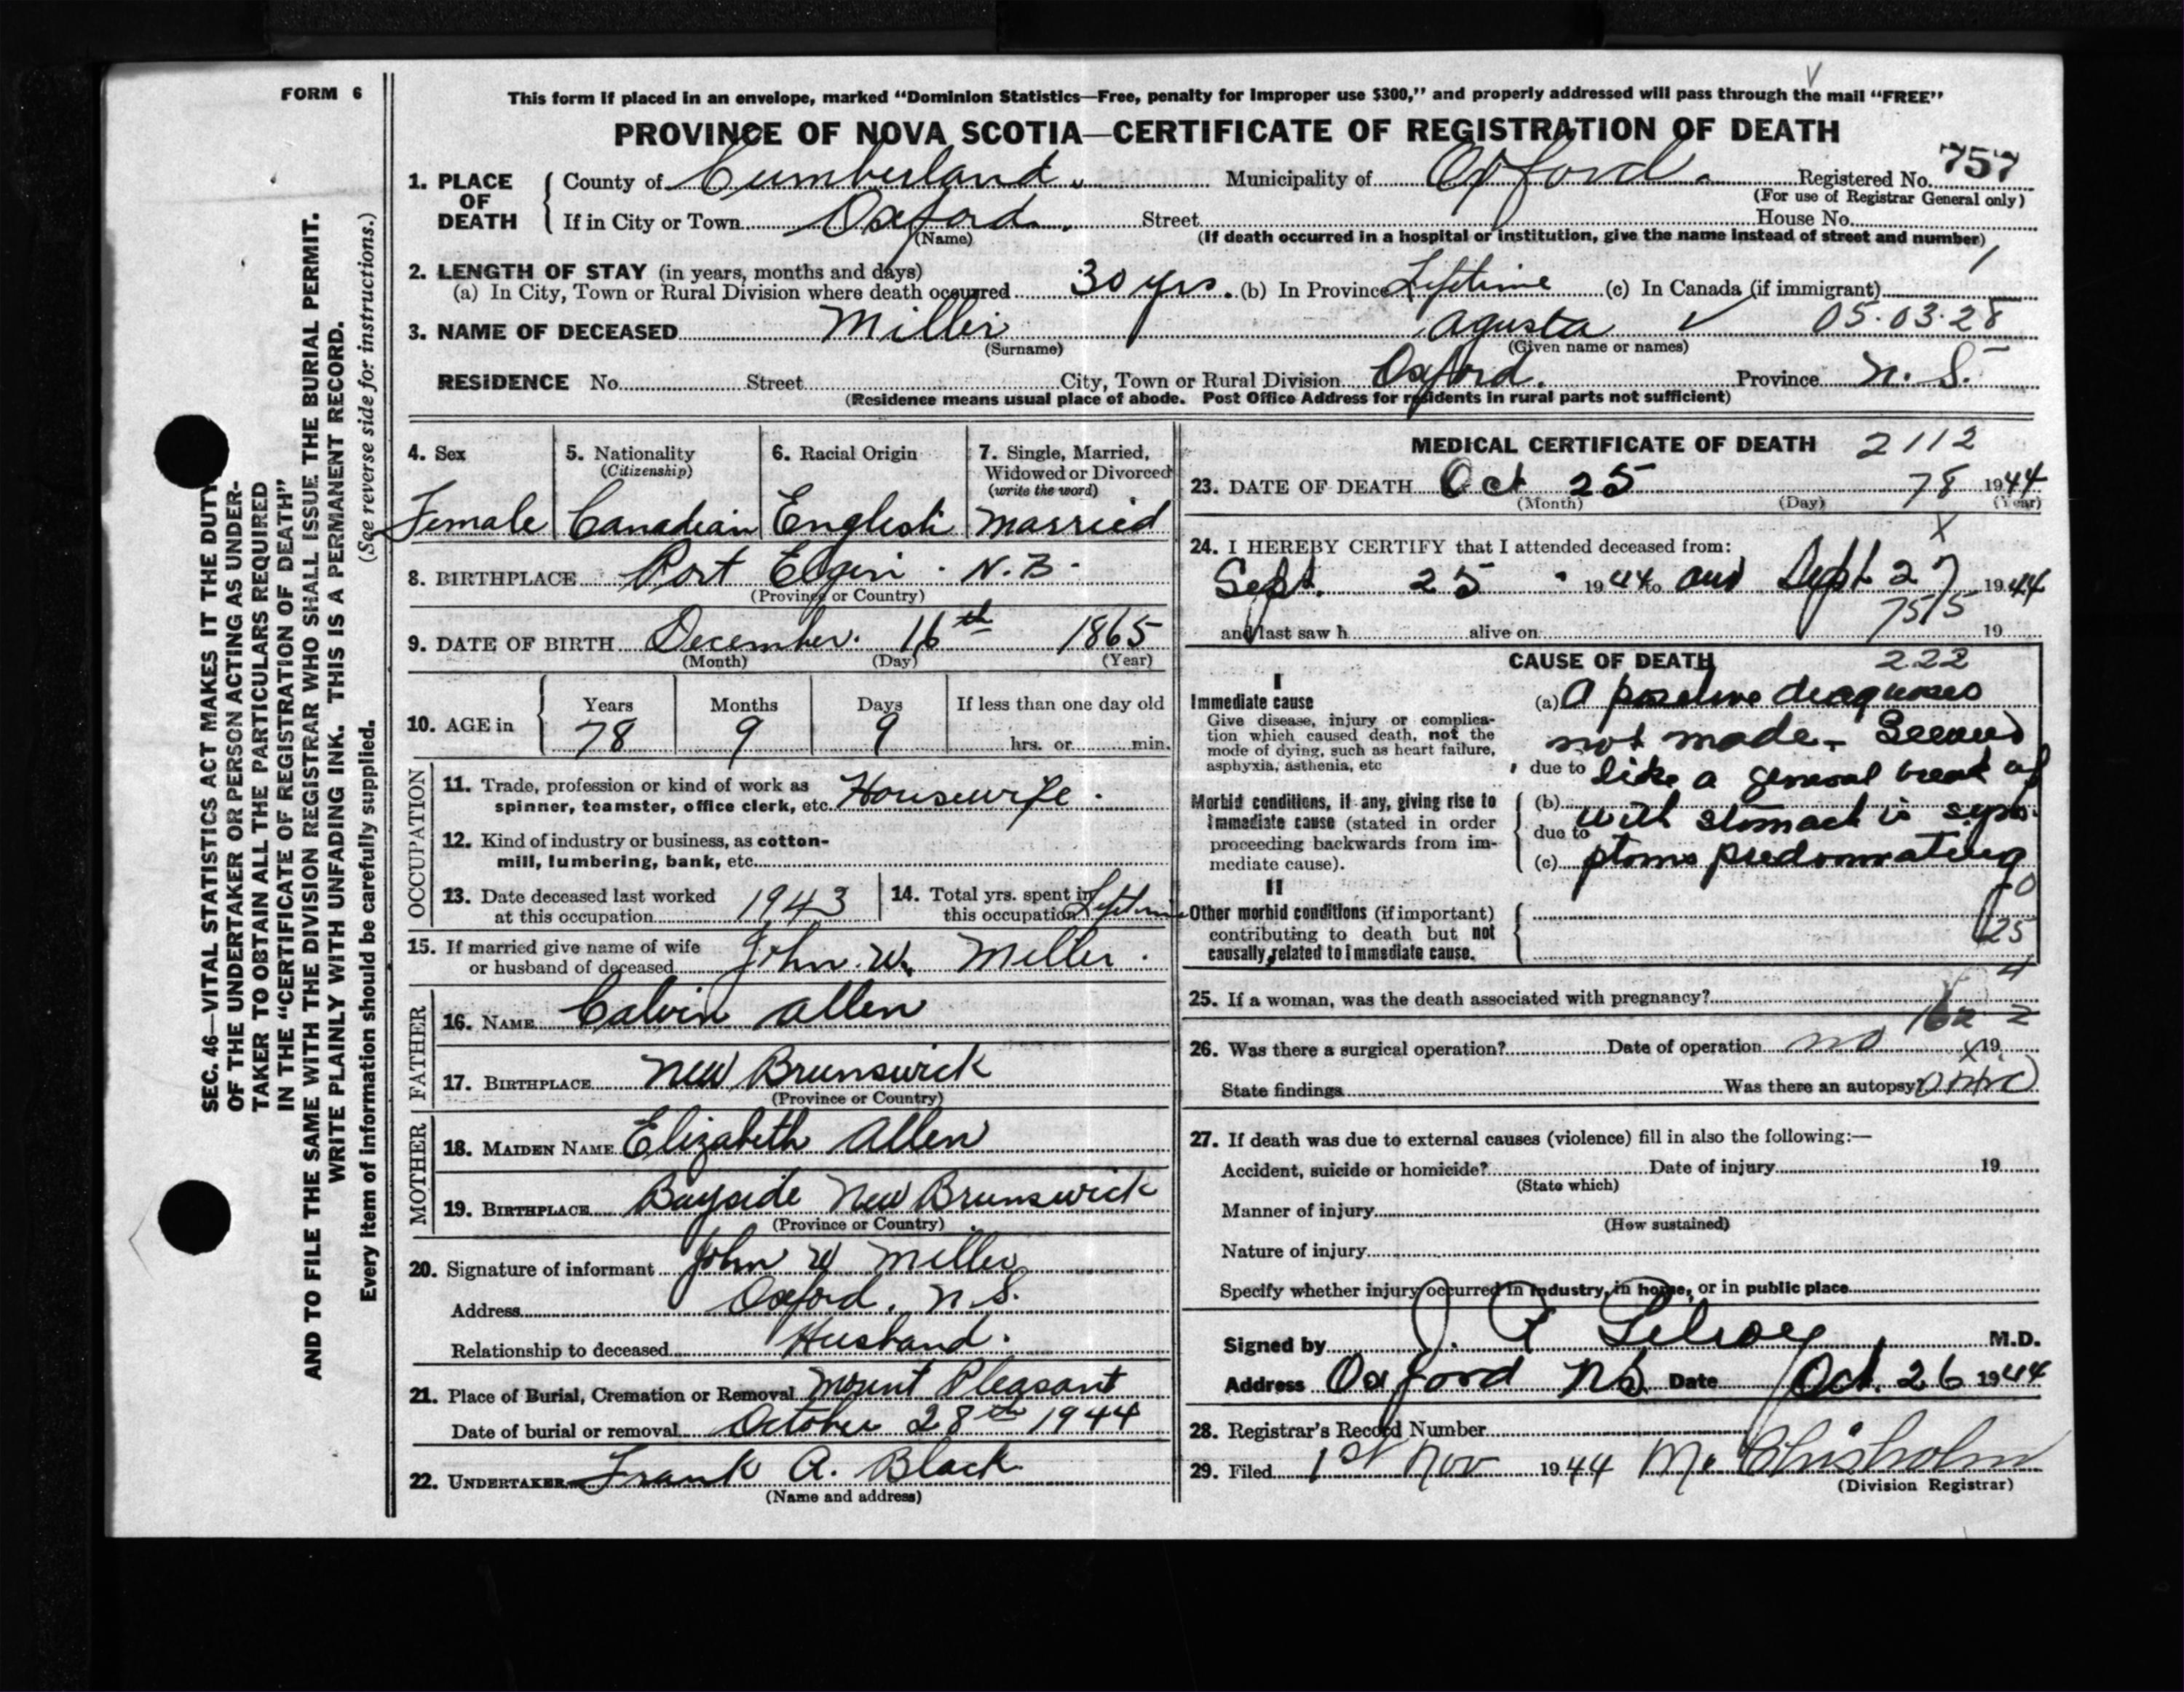 FORM 6
This form if placed in an envelope, marked “Dominion Statistics—Free, penalty for improper use $300,” and properly addressed will pass through the mail “FREE”
PROVINCE OF NOVA SCOTIA—CERTIFICATE OF REGISTRATION OF DEATH
SEC. 46—VITAL STATISTICS ACT MAKES IT THE DUTY
OF THE UNDERTAKER OR PERSON ACTING AS UNDER-
TAKER TO OBTAIN ALL THE PARTICULARS REQUIRED
IN THE “CERTIFICATE OF REGISTRATION OF DEATH”
AND TO FILE THE SAME WITH THE DIVISION REGISTRAR WHO SHALL ISSUE THE BURIAL PERMIT.
WRITE PLAINLY WITH UNFADING INK. THIS IS A PERMANENT RECORD.
(See reverse side for instructions.)
Every item of information should be carefully supplied.
1. PLACE OF DEATH County of Cumberland. Municipality of Oxford. Registered No. 757
(For use of Registrar General only)
If in City or Town Oxford. Street House No.
(Name) (If death occurred in a hospital or institution, give the name instead of street and number)
2. LENGTH OF STAY (in years, months and days)
(a) In City, Town or Rural Division where death occurred 30 yrs. (b) In Province Lifetime (c) In Canada (if immigrant)
3. NAME OF DECEASED Miller Agusta 05.03.28
(Surname) (Given name or names)
RESIDENCE No. Street City, Town or Rural Division Oxford. Province N. S.
(Residence means usual place of abode. Post Office Address for residents in rural parts not sufficient)
4. Sex 5. Nationality (Citizenship) 6. Racial Origin 7. Single, Married, Widowed or Divorced (write the word)
Female Canadian English Married
8. BIRTHPLACE Port Elgin. N.B.
(Province or Country)
9. DATE OF BIRTH December. 16th 1865
(Month) (Day) (Year)
10. AGE in Years Months Days If less than one day old
78 9 9 hrs. or min.
OCCUPATION
11. Trade, profession or kind of work as
spinner, teamster, office clerk, etc. Housewife.
12. Kind of industry or business, as cotton-
mill, lumbering, bank, etc.
13. Date deceased last worked
at this occupation 1943
14. Total yrs. spent in
this occupation Lifetime
15. If married give name of wife
or husband of deceased John. W. Miller.
FATHER
16. NAME Calvin Allen
17. BIRTHPLACE New Brunswick
(Province or Country)
MOTHER
18. MAIDEN NAME Elizabeth Allen
19. BIRTHPLACE Bayside New Brunswick
(Province or Country)
20. Signature of informant John W Miller
Address Oxford, N. S.
Relationship to deceased Husband.
21. Place of Burial, Cremation or Removal Mount Pleasant
Date of burial or removal October 28th 1944
22. UNDERTAKER Frank A. Black
(Name and address)
MEDICAL CERTIFICATE OF DEATH 2112
23. DATE OF DEATH Oct 25 78 1944
(Month) (Day) (Year)
24. I HEREBY CERTIFY that I attended deceased from:
Sept. 25 1944 to and Sept 27 1944
7515
and last saw h alive on 19
CAUSE OF DEATH 222
I
Immediate cause
Give disease, injury or complica-
tion which caused death, not the
mode of dying, such as heart failure,
asphyxia, asthenia, etc
(a) A positive diagnoses
not made — Seemed
due to like a general break up
Morbid conditions, if any, giving rise to
immediate cause (stated in order
proceeding backwards from im-
mediate cause).
(b) with stomach is sym-
due to
(c) ptoms predominating
II
Other morbid conditions (if important)
contributing to death but not
causally related to immediate cause.
25
25. If a woman, was the death associated with pregnancy?
26. Was there a surgical operation? Date of operation no 19
State findings Was there an autopsy?
27. If death was due to external causes (violence) fill in also the following:—
Accident, suicide or homicide? Date of injury 19
(State which)
Manner of injury
(How sustained)
Nature of injury
Specify whether injury occurred in industry, in home, or in public place
Signed by J. M.D.
Address Oxford NS Date Oct. 26 1944
28. Registrar's Record Number
29. Filed 1st Nov 1944 Chisholm
(Division Registrar)